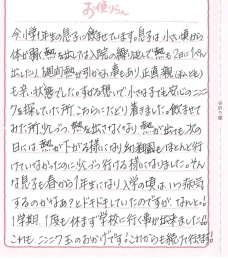 お便りらん
今小学1年生の息子に飲ませています。息子は小さい頃から
体が弱く熱を出しては入院の繰り返しで、熱も2日に1ぺん
出したり、1週間熱が引かない事もあり正直親(ほんとに)
も辛い状態でした。すがる想いで小さな子でも安心のニンニク
を探していた所、こちらにたどり着きました。飲ませて
みた所、少しづつ熱を出さなくなり、熱が出ても次の
日には熱が下がる様になり幼稚園もほとんど行
けていなかったのに少しづつ行ける様になりました。そん
な息子も春から1年生になり入学の頃はいつ病気
するのかなぁ?とドキドキしていたのですが、なんと!!
1学期、1度も休まず学校に行く事が出来ました!!
これも、ニンニク玉のおかげです。これからも続けて行きます!